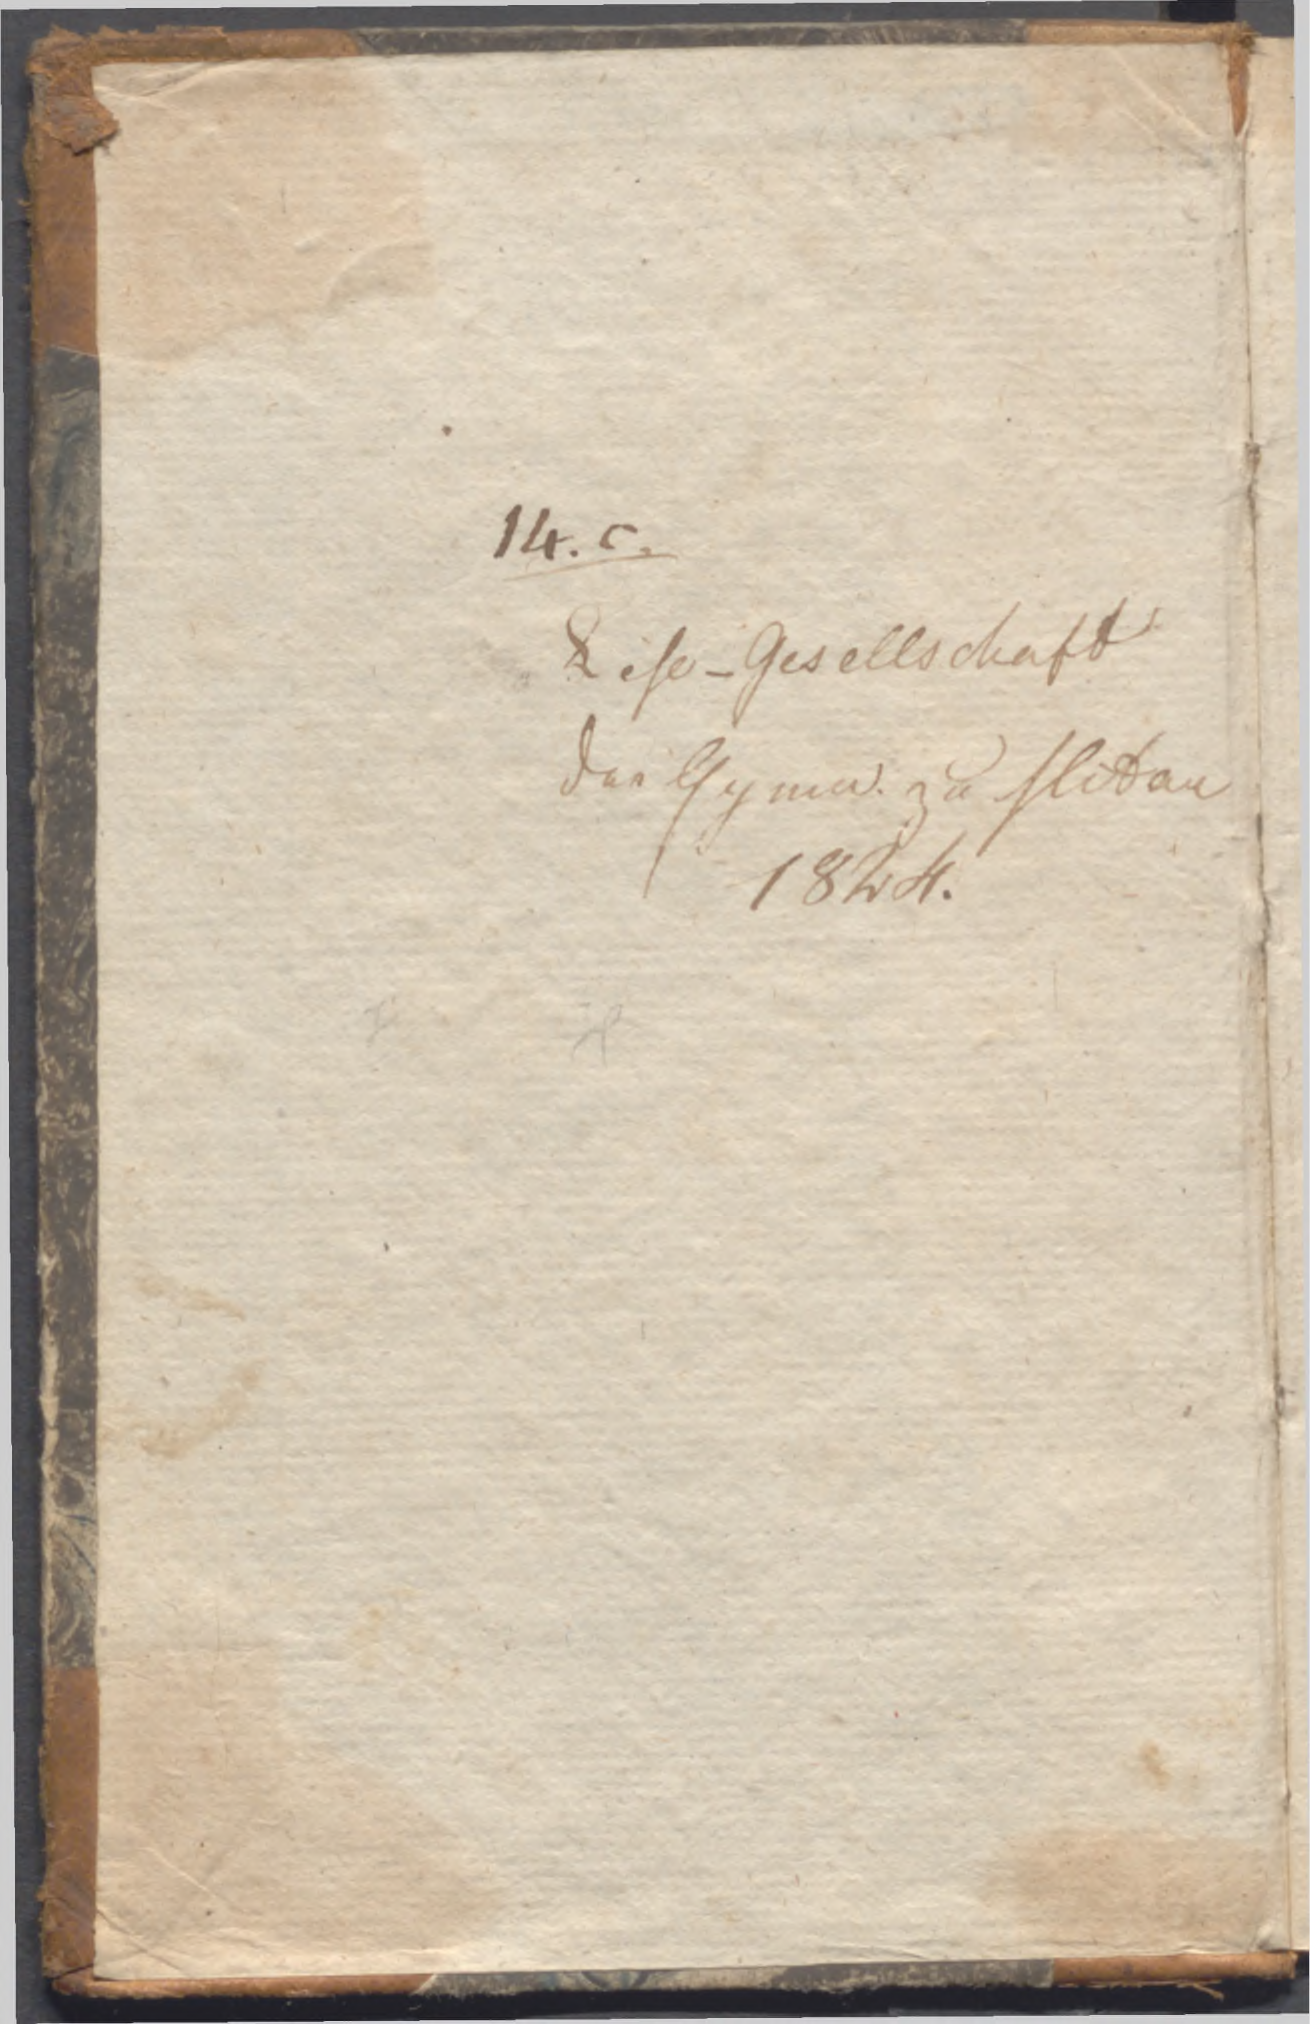 14. c.
Lese-Gesellschaft
des Gymn. zu Mitau
1824.